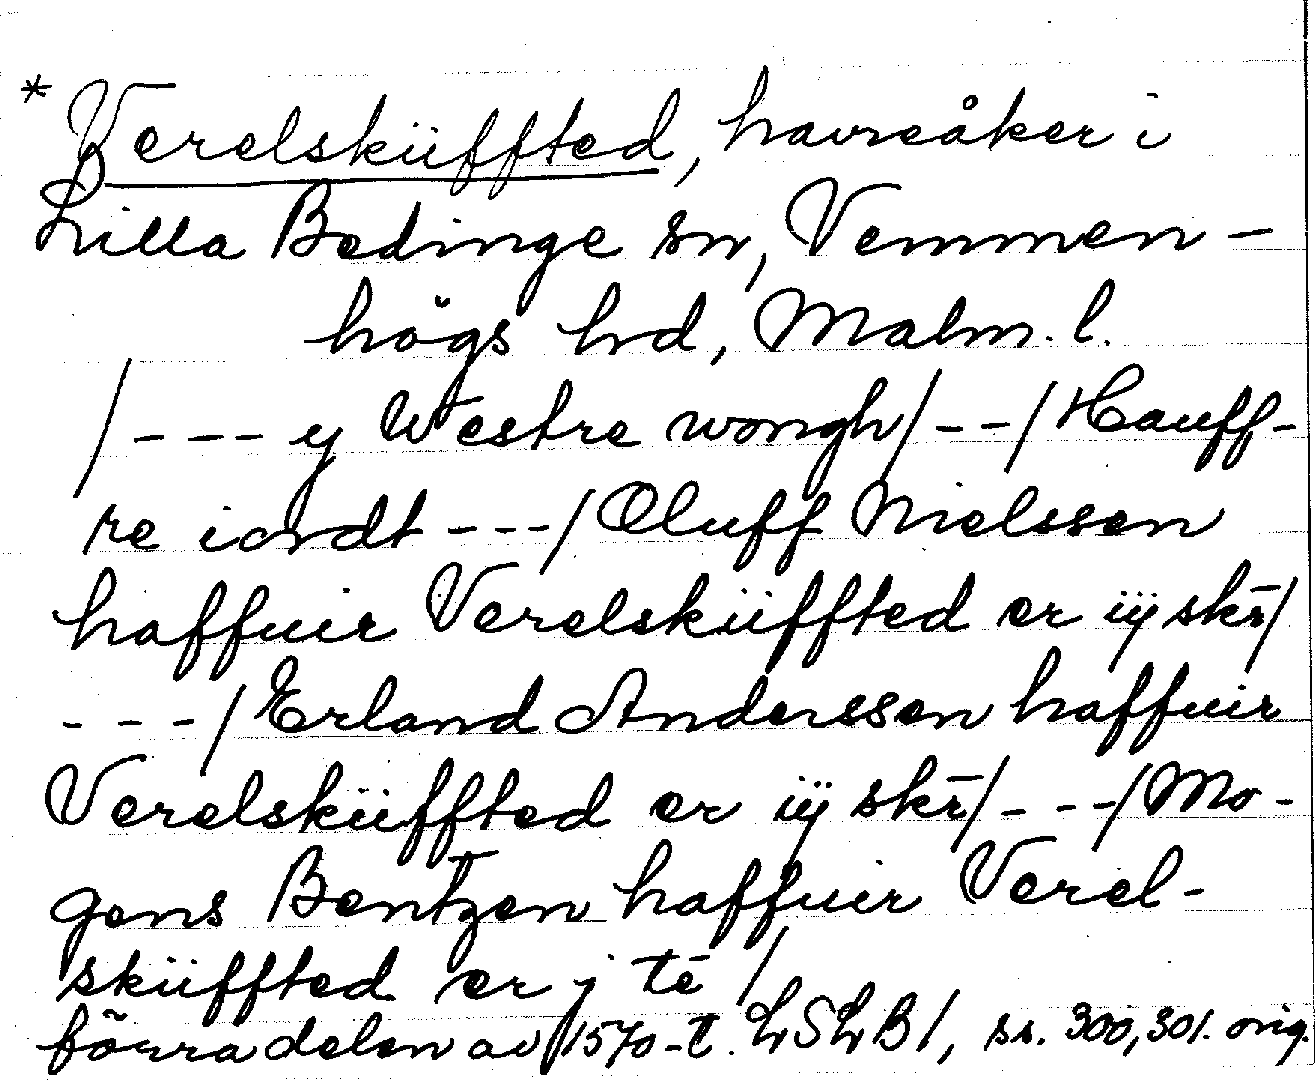 * Verelsküffted, havreåker i
Lilla Bedinge sn, Vemmen-
högs hd, Malm. l.
/---y Westre wongh/--/Hauff-
re iordt---/Oluff Nielssen
haffuir Verelsküffted er iij skr̄/
---/Erland Anderssen haffuir
Verelsküffted er iij skr̄/---/Mo-
gens Bentzen haffuir Verel-
sküffted er j te /
förra delen av 1570-t. LSLB1, ss. 300, 301. orig.